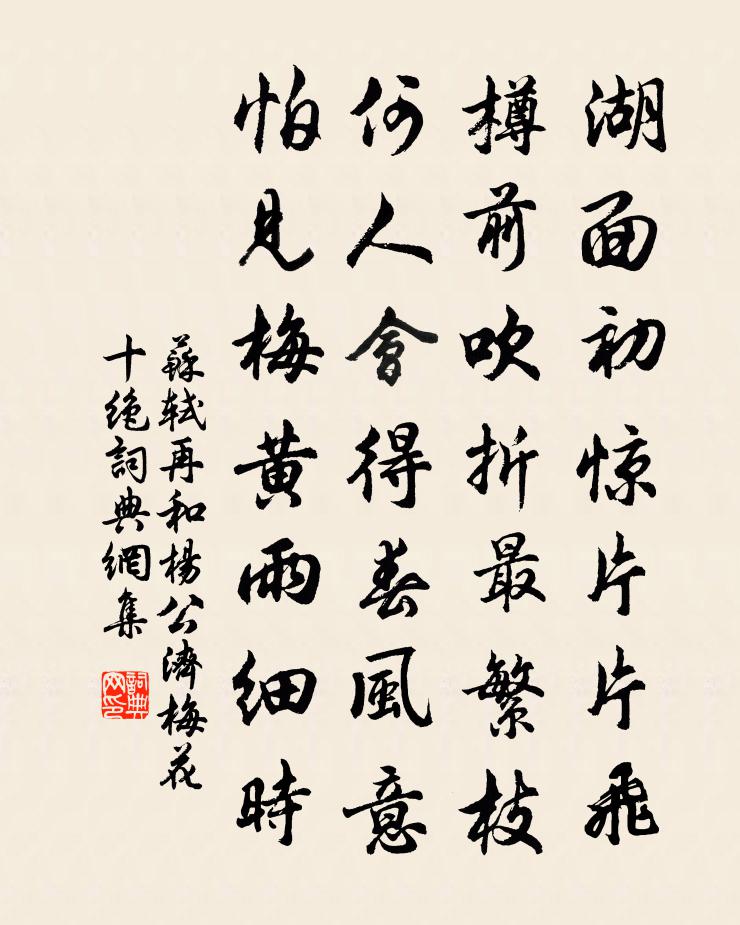 湖面初惊片片飛
樽前吹折最繁枝
何人會得春風意
怕見梅黃雨細時
蘇軾再和楊公濟梅花
十絶詞典網集
詞典网印